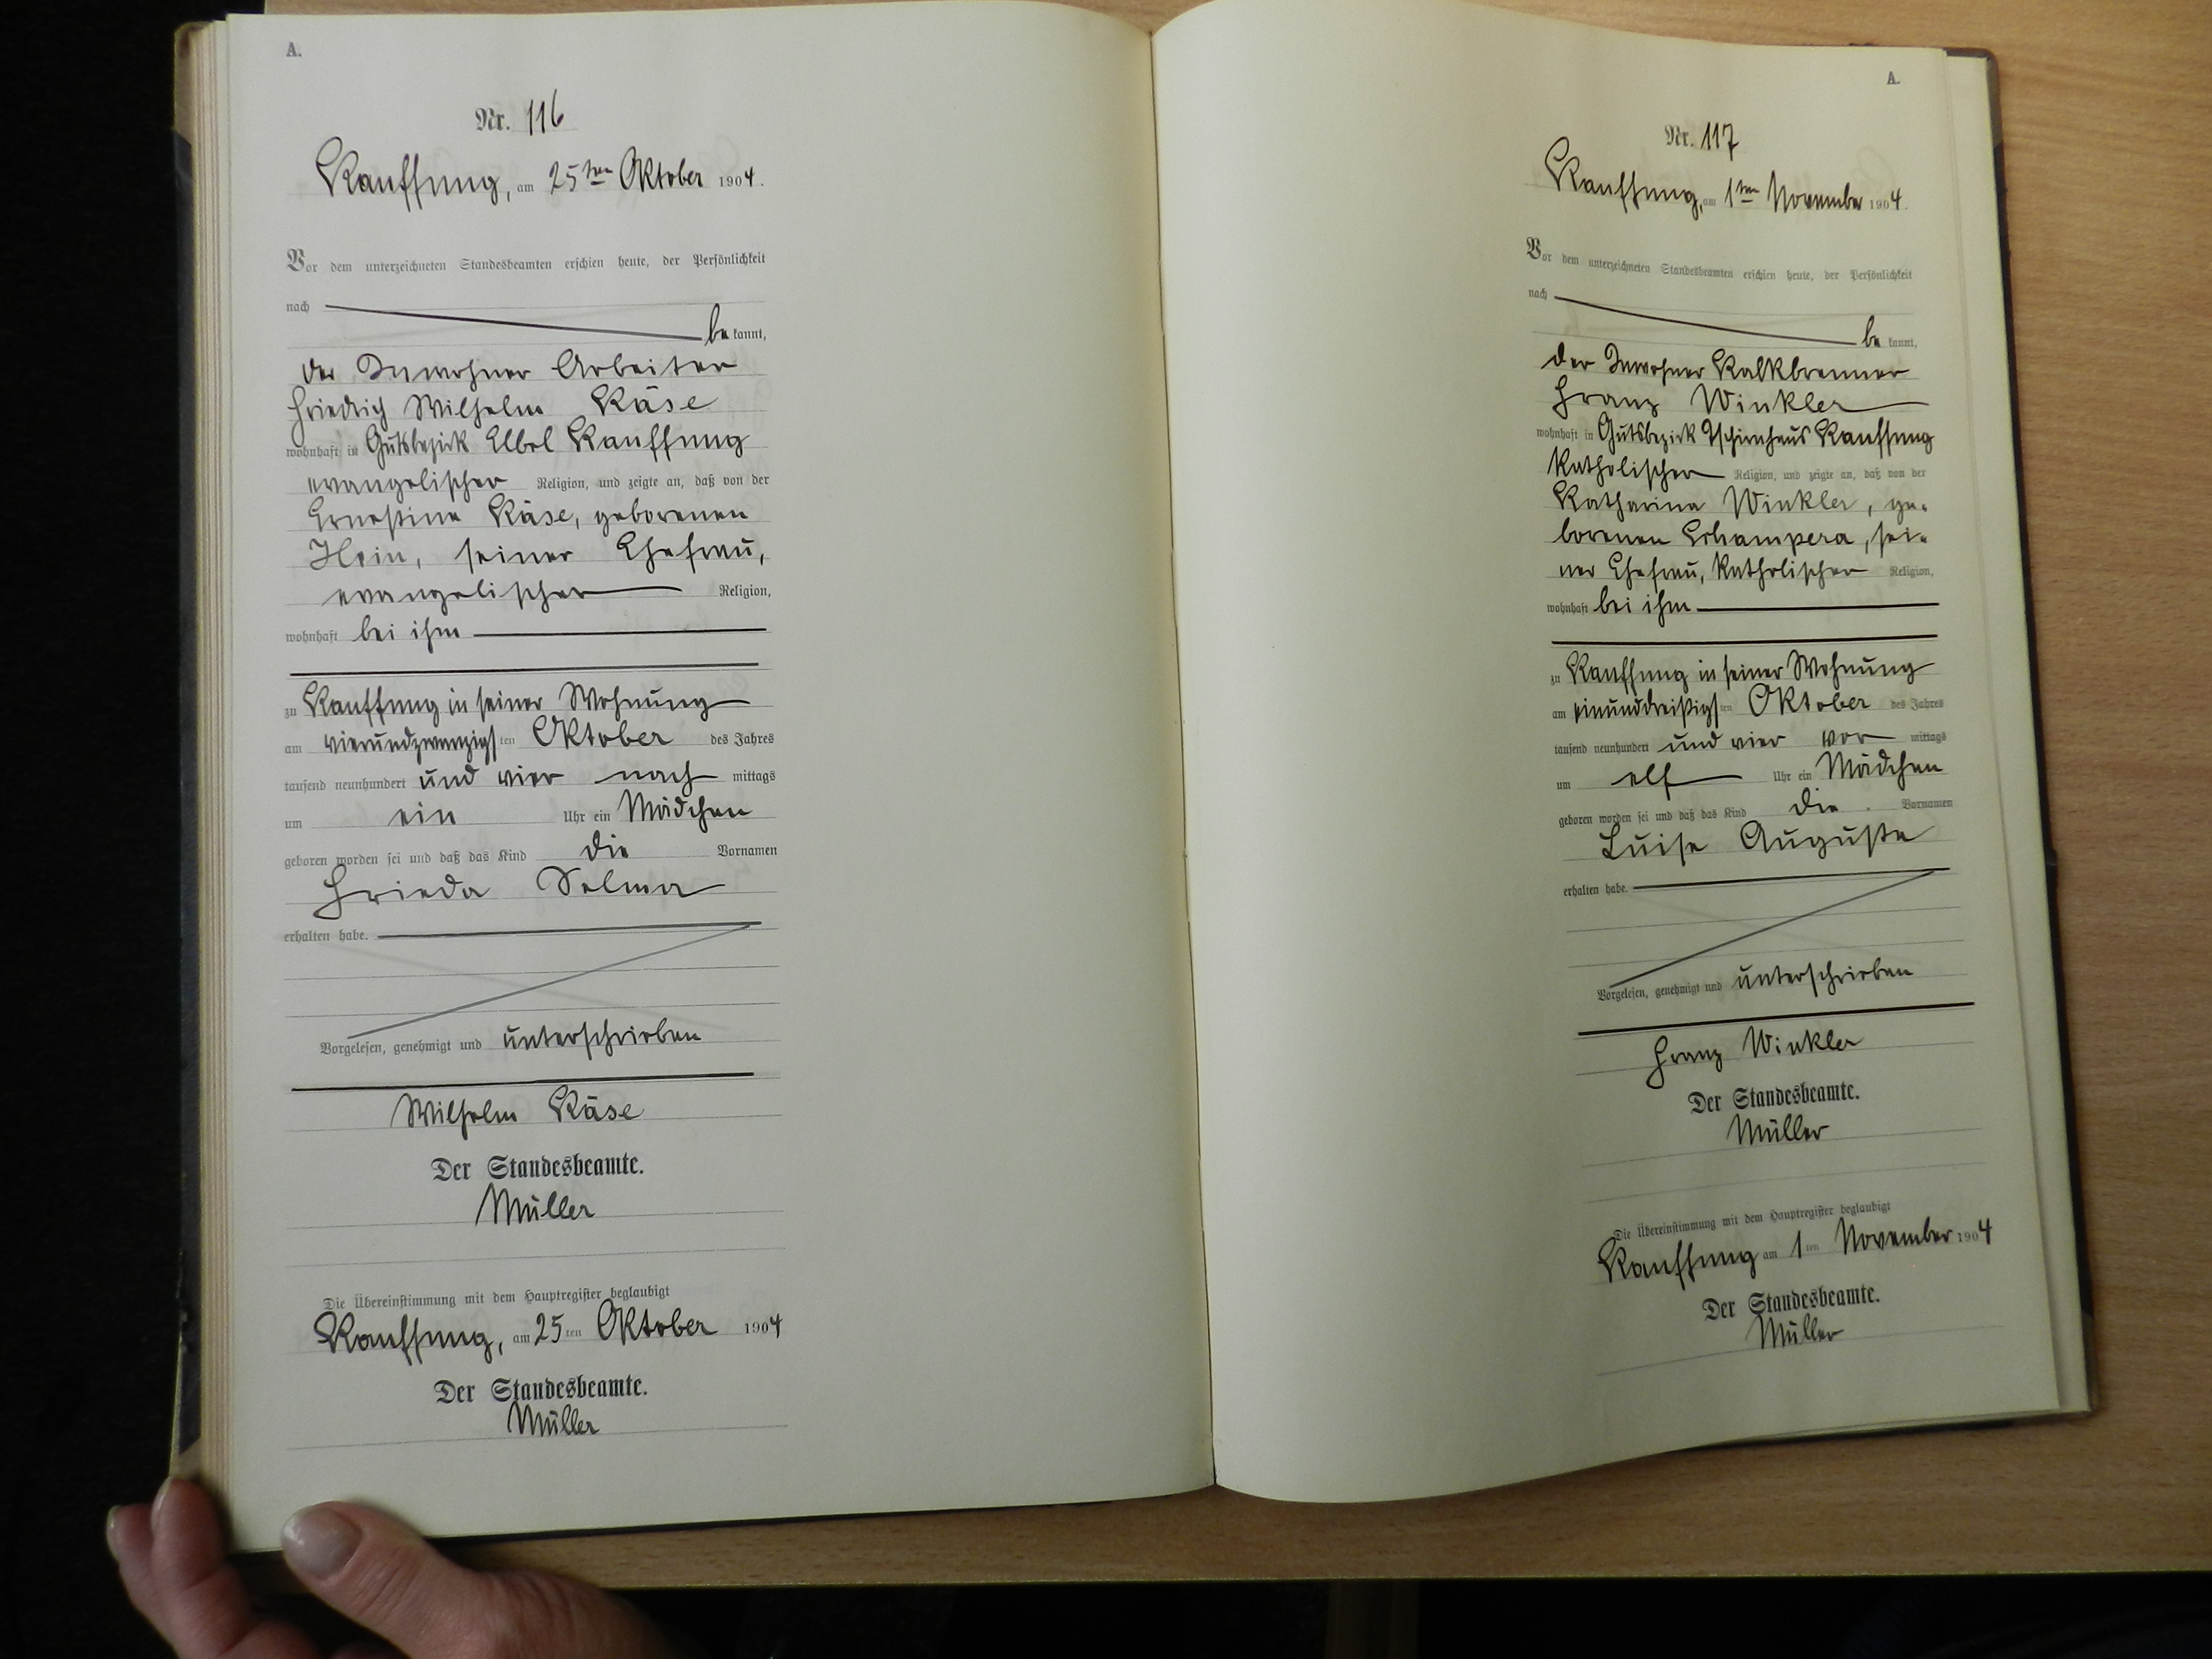 A.
Nr. 116
Kauffung, am 25ten Oktober 1904.
Vor dem unterzeichneten Standesbeamten erschien heute, der Persönlichkeit
nach
be kannt,
der Inwohner Arbeiter
Friedrich Wilhelm Käse
wohnhaft in Gutsbezirk Elbel Kauffung
evangelischer Religion, und zeigte an, daß von der
Ernestine Käse, geborenen
Hein, seiner Ehefrau,
evangelischer Religion,
wohnhaft bei ihm
zu Kauffung in seiner Wohnung
am vierundzwanzigsten Oktober des Jahres
tausend neunhundert und vier nach mittags
um ein Uhr ein Mädchen
geboren worden sei und daß das Kind die Vornamen
Frieda Selma
erhalten habe.
Vorgelesen, genehmigt und unterschrieben
Wilhelm Käse
Der Standesbeamte.
Müller
Die Übereinstimmung mit dem Hauptregister beglaubigt
Kauffung, am 25ten Oktober 1904
Der Standesbeamte.
Müller
A.
Nr. 117
Kauffung, am 1ten November 1904.
Vor dem unterzeichneten Standesbeamten erschien heute, der Persönlichkeit
nach
be kannt,
der Inwohner Kalkbrenner
Franz Winkler
wohnhaft in Gutsbezirk Tschirnhaus Kauffung
katholischer Religion, und zeigte an, daß von der
Katharina Winkler, ge-
borenen Schampera, sei-
ner Ehefrau, katholischer Religion,
wohnhaft bei ihm
zu Kauffung in seiner Wohnung
am einunddreißigsten Oktober des Jahres
tausend neunhundert und vier vor mittags
um elf Uhr ein Mädchen
geboren worden sei und daß das Kind die Vornamen
Luise Auguste
erhalten habe.
Vorgelesen, genehmigt und unterschrieben
Franz Winkler
Der Standesbeamte.
Müller
Die Übereinstimmung mit dem Hauptregister beglaubigt
Kauffung am 1ten November 1904
Der Standesbeamte.
Müller